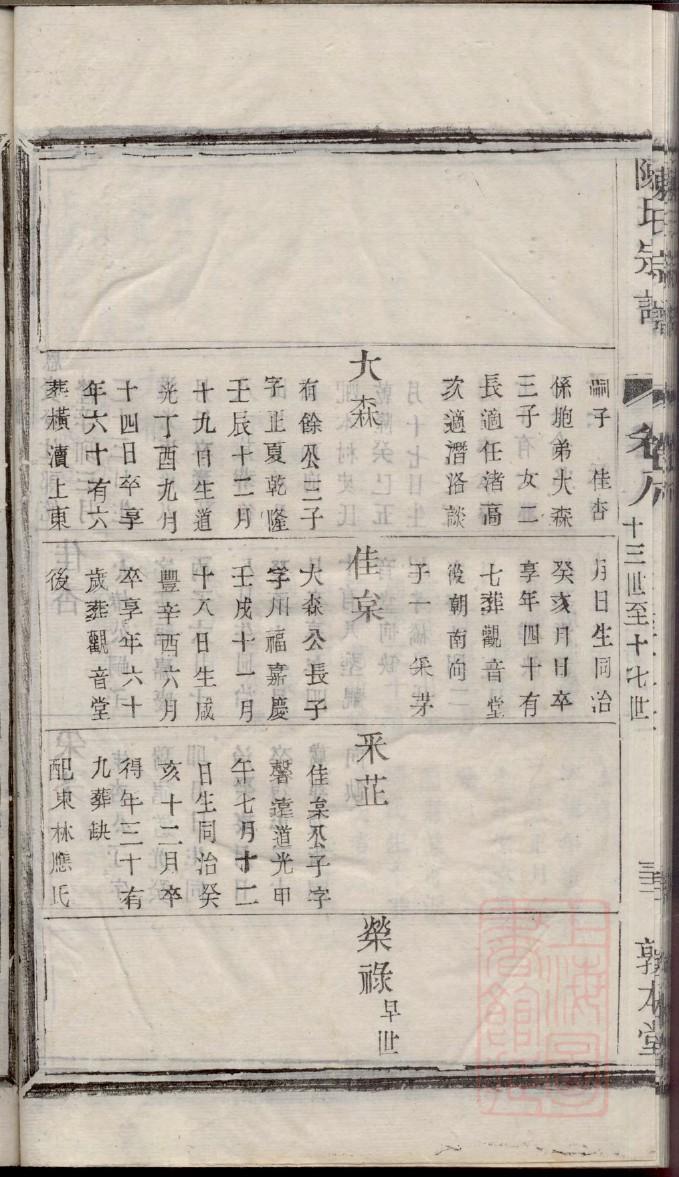 陳氏宗譜
卷
十三世至十七世
敦本堂
嗣子 佳杏
係胞弟大森
三子有女二
長適任渚高
次適潛洛談
大森
有餘公三子
字正夏乾隆
壬辰十二月
十九日生道
光丁酉九月
十四日卒享
年六十有六
葬橫瀆上東
月日生同治
癸亥月日卒
享年四十有
七葬觀音堂
後朝南向
子一 采芽
佳枲
大森公長子
字州福嘉慶
壬戌十一月
十八日生咸
豐辛酉六月
卒享年六十
歲葬觀音堂
後
采芷
佳枲公子字
馨遠道光甲
午七月十二
日生同治癸
亥十二月卒
得年三十有
九葬缺
配東林應氏
榮祿 早世
上海圖書館藏